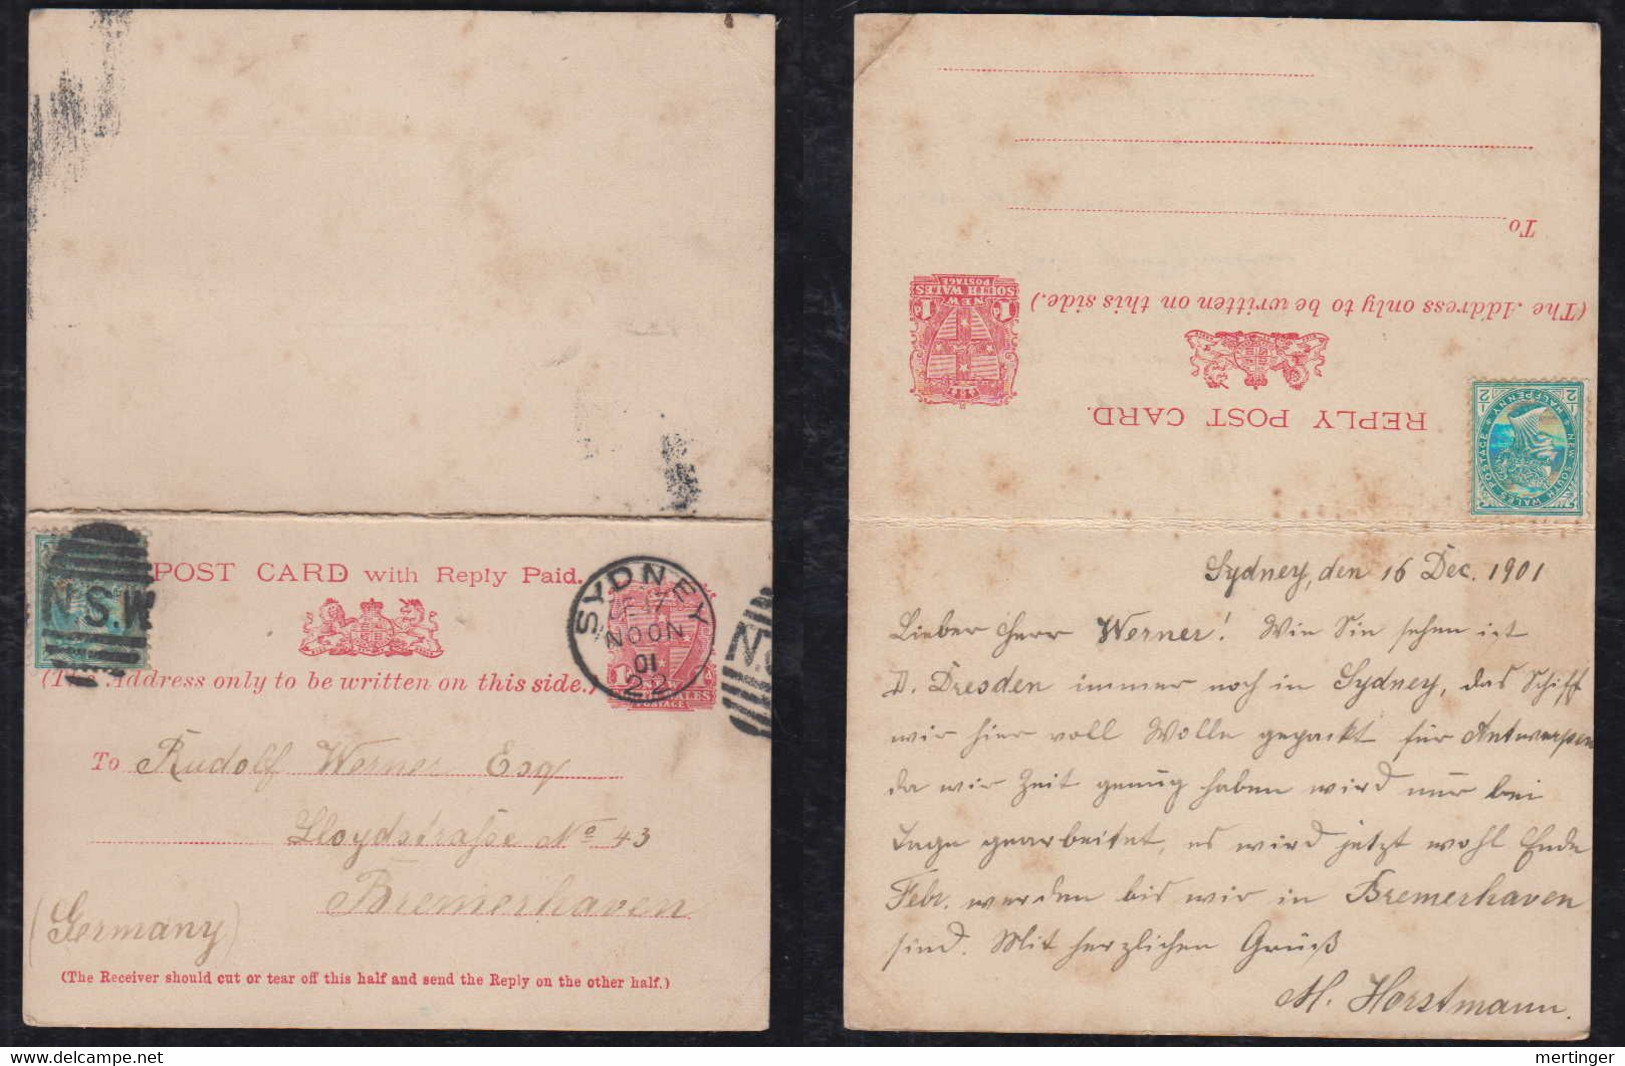 POST CARD with Reply Paid.
(The Address only to be written on this side.)
N.S.W
SYDNEY
DE 17
NOON
01
22
To Rudolf Werner Esq
Lloydstraße No 43
Bremerhaven
(Germany)
(The Receiver should cut or tear off this half and send the Reply on the other half.)
REPLY POST CARD.
(The Address only to be written on this side.)
To
NEW SOUTH WALES
POSTAGE
1d 1d
NEW SOUTH WALES POSTAGE
HALFPENNY
1/2 1/2
Sydney, den 16 Dec. 1901
Lieber Herr Werner! Wie Sie sehen ist
D. Dresden immer noch in Sydney, das Schiff
wir hier voll Wolle gepackt für Antwerpen
da wir Zeit genug haben wird nur bei
Tage gearbeitet, es wird jetzt wohl Ende
Febr. werden bis wir in Bremerhaven
sind. Mit herzlichen Gruß
M. Horstmann.
mertinger